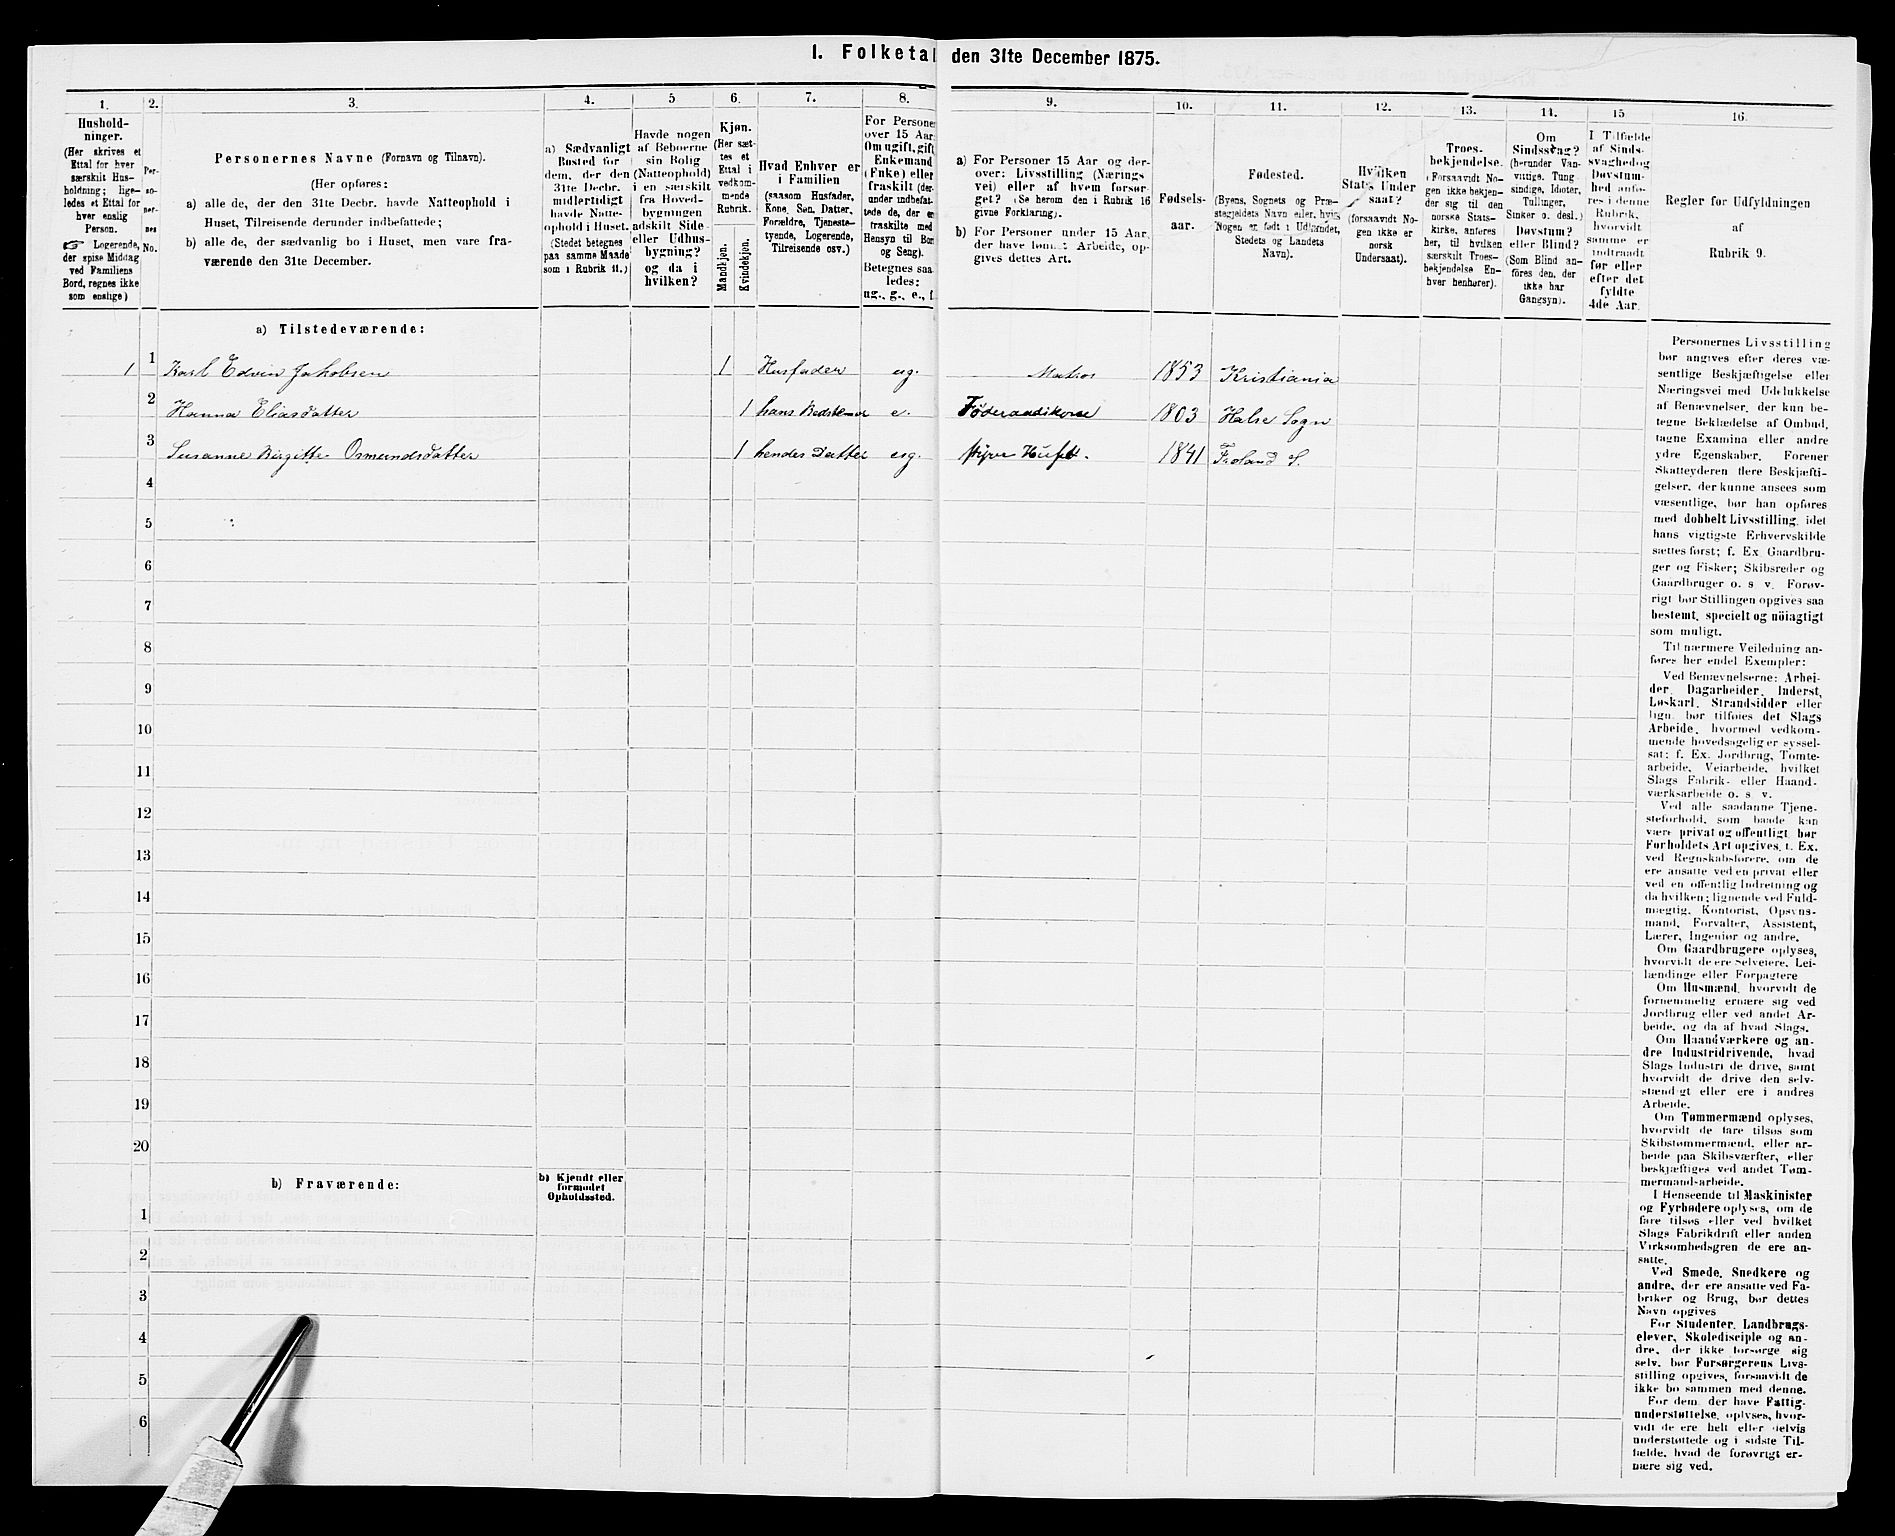 I. Folketal den 31te December 1875.
1. 2. 3. 4. 5 6. 7. 8. 9. 10. 11. 12. 13. 14. 15 16.
Hushold-
ninger.
(Her skrives et
Ettal for hver
særskilt Hus-
holdning; lige-
ledes et Ettal for
hver enslig
Person.
☞ Logerende,
der spise Middag
ved Familiens
Bord, regnes ikke
som enslige)
Per-
so-
ner-
nes
No.
Personernes Navne (Fornavn og Tilnavn).
(Her opføres:
a) alle de, der den 31te Decbr. havde Natteophold i
Huset, Tilreisende derunder indbefattede;
b) alle de, der sædvanlig bo i Huset, men vare fra-
værende den 31te December.
a) Sædvanligt
Bosted for
dem, der den
31te Decbr.
midlertidigt
havde Natte-
ophold i Huset.
(Stedet betegnes
paa samme Maade
som i Rubrik 11.)
Havde nogen
af Beboerne
sin Bolig
(Natteophold)
i en særskilt
fra Hoved-
bygningen
adskilt Side-
eller Udhus-
bygning?
og da i
hvilken?
Kjøn.
(Her sæt-
tes et
Ettal i
vedkom-
mende
Rubrik.
Mandkjøn.
Kvindekjøn.
Hvad Enhver er
i Familien
(saasom Husfader,
Kone, Søn, Datter,
Forældre, Tjeneste-
tyende, Logerende,
Tilreisende osv.)
For Persone
over 15 Aar
Om ugift, gift
Enkemand
(Enke) eller
fraskilt (der-
under indbefat-
tede de, der er
fraskilte med
Hensyn til Bor
og Seng).
Betegnes saa
ledes:
ug., g., e., f.
a) For Personer 15 Aar og der-
over: Livsstilling (Nærings
vei) eller af hvem forsør-
get? (Se herom den i Rubrik 16
givne Forklaring).
b) For Personer under 15 Aar,
der have lønnet Arbeide, op-
gives dettes Art.
Fødsels-
aar.
Fødested.
(Byens, Sognets og Præ-
stegjeldets Navn eller, hvis
Nogen er født i Udlandet,
Stedets og Landets
Navn).
Hvilken
Stats Under
saat?
(forsaavidt No-
gen ikke er
norsk
Undersaat).
Troes-
bekjendelse.
(Forsaavidt No-
gen ikke bekjen-
der sig til den
norske Stats-
kirke, anføres
her, til hvilken
særskilt Troes-
bekjendelse En-
hver henhører).
Om
Sindssvag?
(herunder Van-
vittige, Tung
sindige, Idioter,
Tullinger,
Sinker o. desl.)
Døvstum?
eller Blind?
(Som Blind an-
føres den, der
ikke har
Gangsyn).
I Tilfælde
af Sinds-
svaghed og
Døvstum-
hed anfø-
res i denne
Rubrik,
hvorvidt
samme er
indtraadt
før eller
efter det
fyldte
4de Aar.
Regler for Udfyldningen
af
Rubrik 9.
a) Tilstedeværende:
1 1 Karl Edvin Jakobsen 1 Husfader ug. Matros 1853 Kristiania
2 Hanna Eliasdatter 1 hans Bedstemor e. Föderaadskone 1803 Halse Sogn
3 Susanne Birgitte Osmundsdatter 1 hendes Datter ug. 1841 Froland S.
4
5
6
7
8
9
10
11
12
13
14
15
16
17
18
19
20
b) Fraværende:
b) Kjendt eller
formodet
Opholdssted.
1
2
3
4
5
6
Personernes Livsstilling
bør angives efter deres væ-
sentlige Beskjæftigelse eller
Næringsvei med Udelukkelse
af Benævnelser, der kun be-
tegne Beklædelse af Ombud,
tagne Examina eller andre
ydre Egenskaber. Forener
Skatteyderen flere Beskjæfti-
gelser, der kunne ansees som
væsentlige, bør han opføres
med dobbelt Livsstilling, idet
hans vigtigste Erhvervskilde
sættes først; f. Ex. Gaardbru-
ger og Fisker; Skibsreder og
Gaardbruger o. s v. Forøv-
rigt bør Stillingen opgives saa
bestemt, specielt og nöiagtigt
som muligt.
Til nærmere Veiledning an-
føres her endel Exempler:
Ved Benævnelserne: Arbei-
der, Dagarbeider, Inderst,
Løskarl, Strandsidder eller
lign. bør tilføies det Slags
Arbeide, hvormed vedkom-
mende hovedsagelig er syssel-
sat; f. Ex. Jordbrug, Tomte-
arbeide, Veiarbeide, hvilket
Slags Fabrik- eller Haand-
værksarbeide o. s v.
Ved alle saadanne Tjene-
steforhold, som baade kan
være privat og offentligt, bør
Forholdets Art opgives, f. Ex.
ved Regnskabsførere, om de
ere ansatte ved en privat eller
ved en offentlig Indretning og
da hvilken; lignende ved Fuld-
mægtig, Kontorist, Opsyns-
mand, Forvalter, Assistent,
Lærer, Ingeniør og andre.
Om Gaardbrugere oplyses,
hvorvidt de ere Selveiere, Lei-
lændinge eller Forpagtere
Om Husmænd, hvorvidt de
fornemmelig ernære sig ved
Jordbrug eller ved andet Ar-
beide, og da af hvad Slags.
Om Haandværkere og an-
dre Industridrivende, hvad
Slags Industri de drive, samt
hvorvidt de drive den selv-
stændigt eller ere i andres
Arbeide.
Om Tømmermænd oplyses,
hvorvidt de fare tilsøs som
Skibstømmermænd, eller ar-
beide paa Skibsværfter, eller
beskjæftiges ved andet Tøm-
mermandsarbeide.
I Henseende til Maskinister
og Fyrbødere oplyses, om de
fare tilsøs eller ved hvilket
Slags Fabrikdrift eller anden
Virksomhedsgren de ere an-
satte.
Ved Smede, Snedkere og
andre, der ere ansatte ved Fa-
briker og Brug, bør dettes
Navn opgives
For Studenter, Landbrugs-
elever, Skoledisciple og an-
dre, der ikke forsørge sig
selv, bør Forsørgerens Livs-
stilling opgives, forsaavidt de
ikke bo sammen med denne.
For dem, der have Fattig-
understøttelse, oplyses, hvor-
vidt de ere helt eller delvis
understøttede og i sidste Til-
fælde, hvad de forøvrigt er-
nære sig ved.